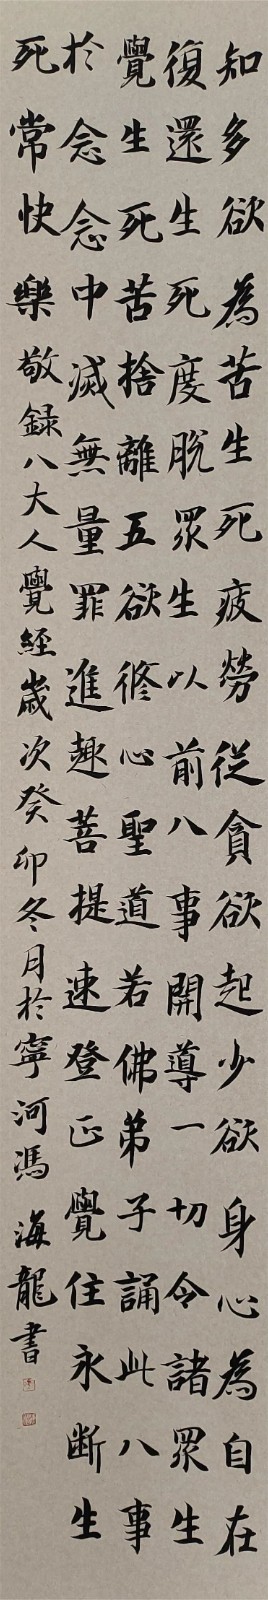 知多欲為苦生死疲勞從貪欲起少欲身心為自在
復還生死度脫眾生以前八事開導一切令諸眾生
覺生死苦捨離五欲修心聖道若佛弟子誦此八事
於念念中滅無量罪進趣菩提速登正覺住永断生
死常快樂敬録八大人覺經歲次癸卯冬月於寧河馮海龍書